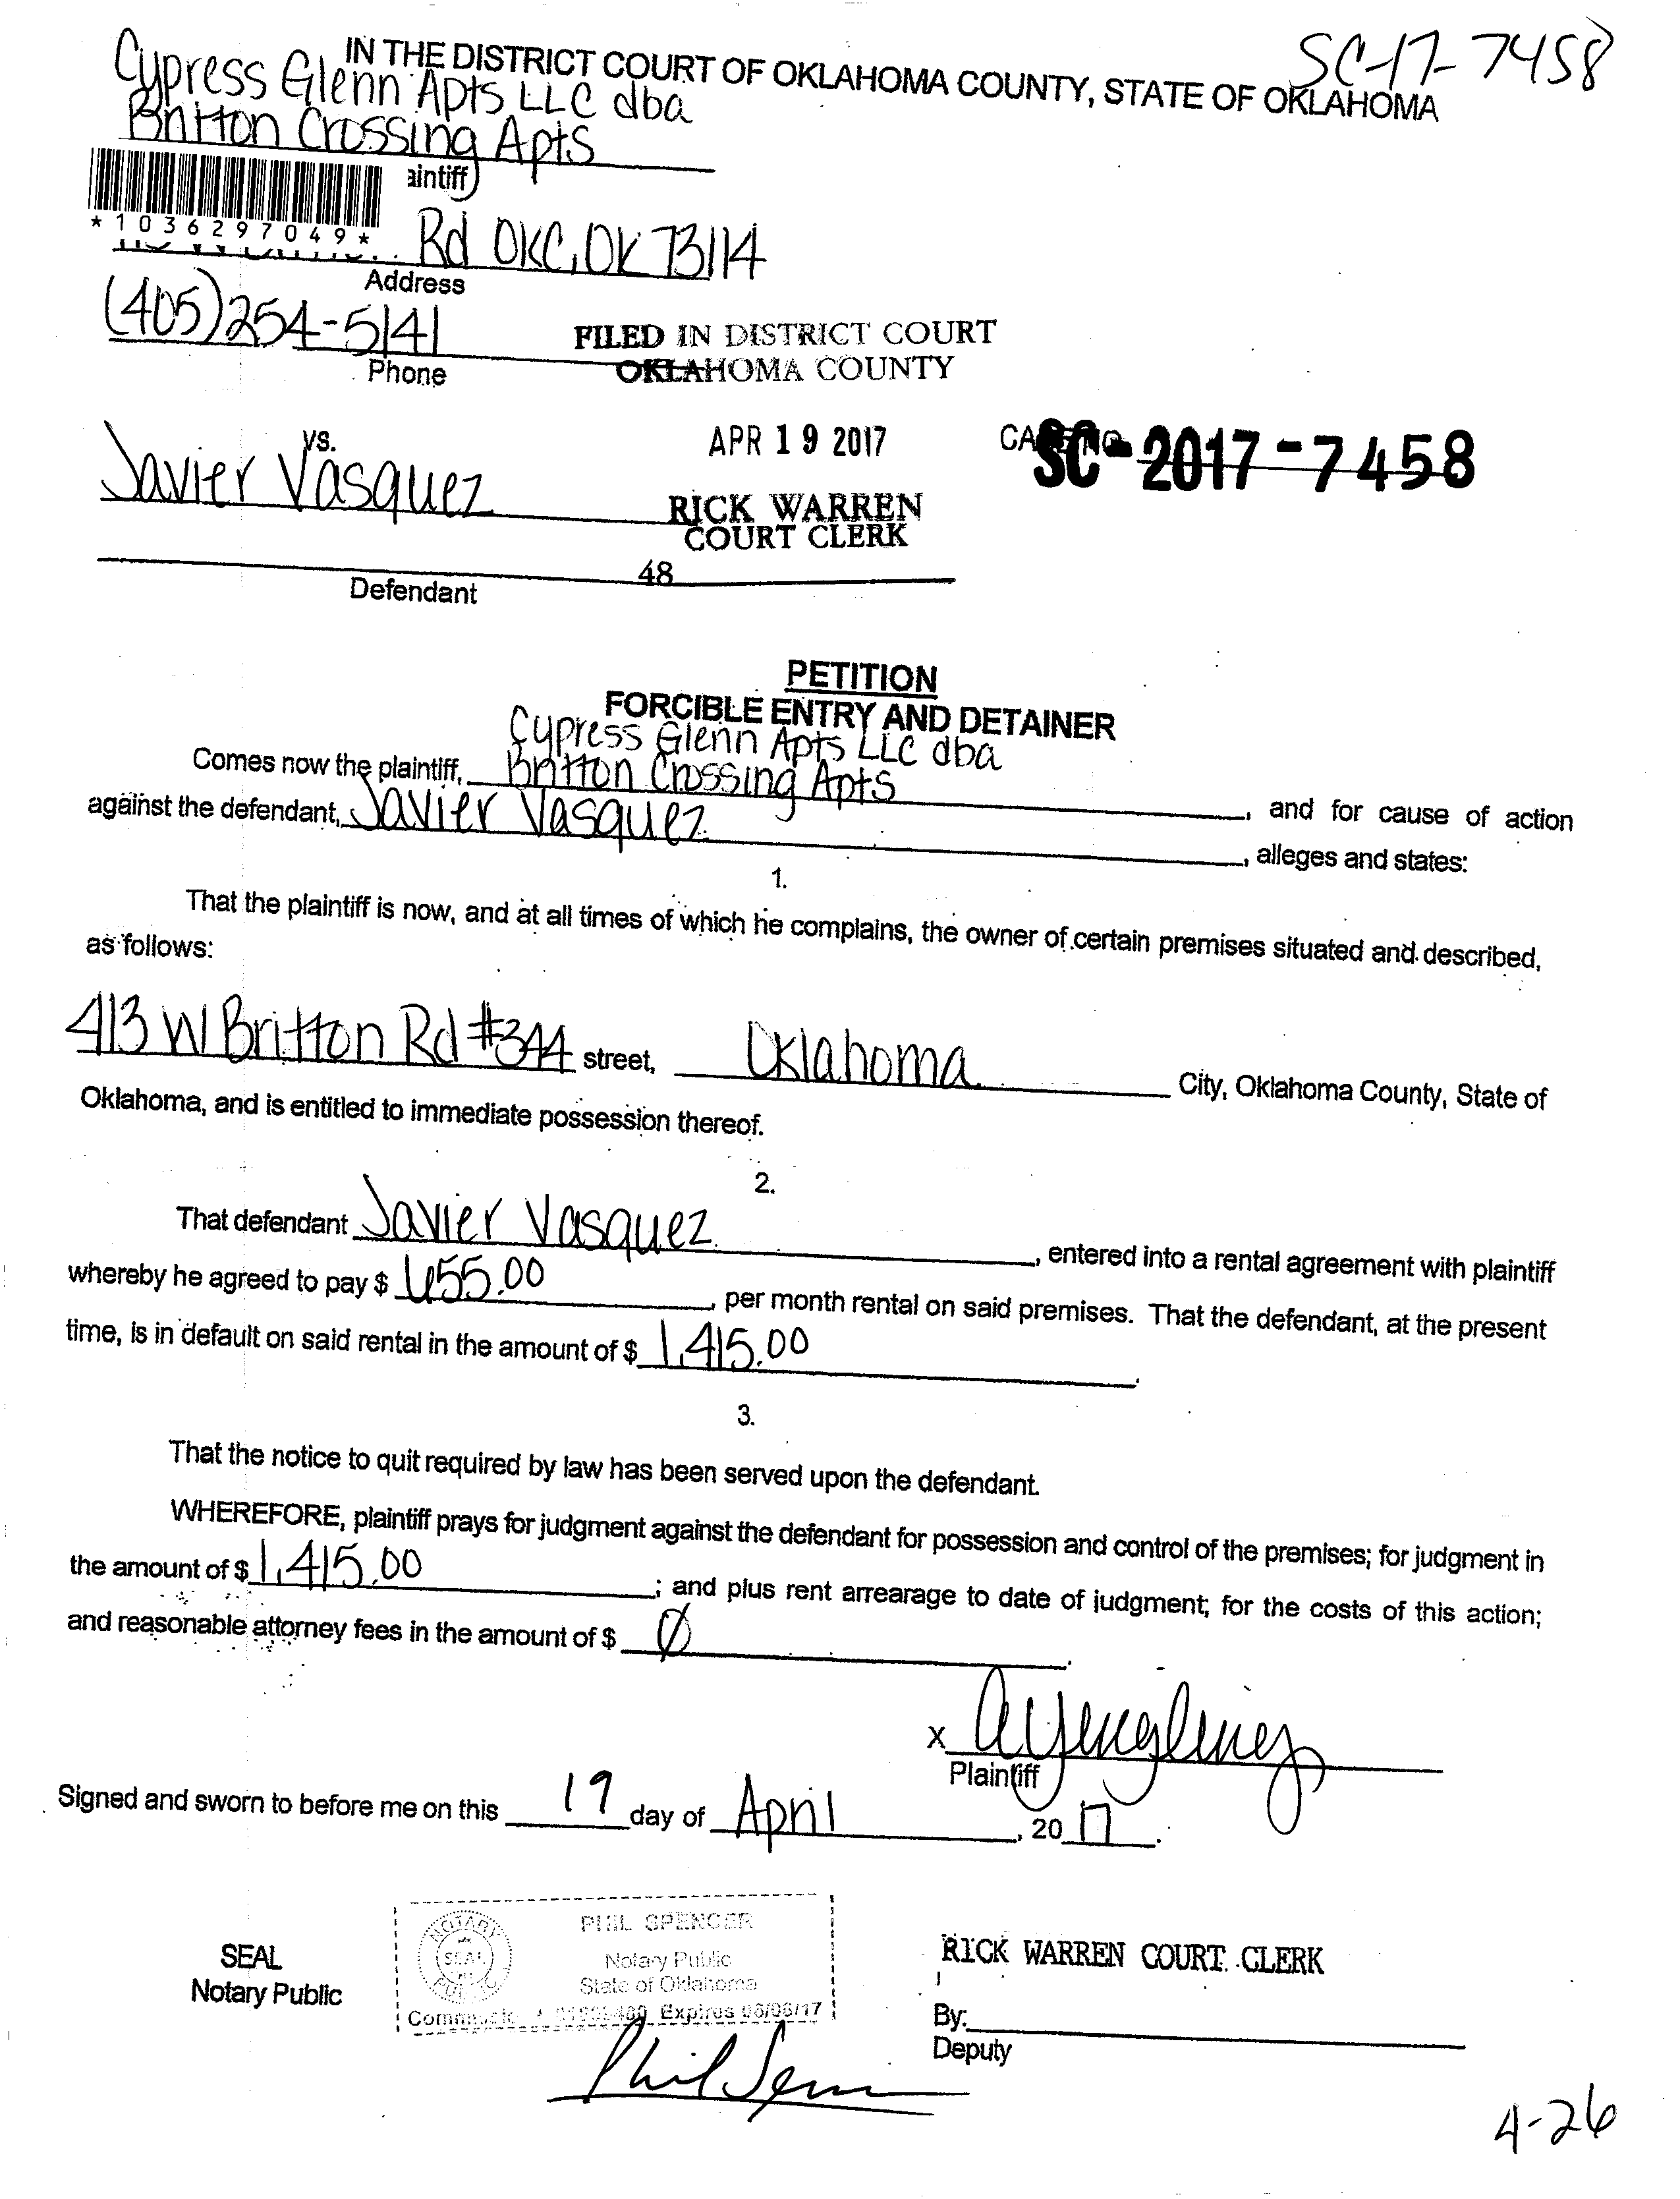 SC-17-7458
IN THE DISTRICT COURT OF OKLAHOMA COUNTY, STATE OF OKLAHOMA
Cypress Glenn Apts LLC dba
Britton Crossing Apts
aintiff
*1036297049*
Rd OKC, OK 73114
Address
(405)254-5141
Phone
FILED IN DISTRICT COURT
OKLAHOMA COUNTY
vs.
APR 19 2017
SC-2017-7458
Javier Vasquez
RICK WARREN
COURT CLERK
48
Defendant
PETITION
FORCIBLE ENTRY AND DETAINER
Cypress Glenn Apts LLC dba
Comes now the plaintiff, Britton Crossing Apts, and for cause of action
against the defendant, Javier Vasquez, alleges and states:
1.
That the plaintiff is now, and at all times of which he complains, the owner of certain premises situated and described,
as follows:
413 W Britton Rd #344 street, Oklahoma City, Oklahoma County, State of
Oklahoma, and is entitled to immediate possession thereof.
2.
That defendant Javier Vasquez, entered into a rental agreement with plaintiff
whereby he agreed to pay $ 655.00, per month rental on said premises. That the defendant, at the present
time, is in default on said rental in the amount of $ 1,415.00.
3.
That the notice to quit required by law has been served upon the defendant.
WHEREFORE, plaintiff prays for judgment against the defendant for possession and control of the premises; for judgment in
the amount of $ 1,415.00; and plus rent arrearage to date of judgment; for the costs of this action;
and reasonable attorney fees in the amount of $ Ø.
x AYengling
Plaintiff
Signed and sworn to before me on this 19 day of April, 2017.
SEAL
Notary Public
NOTARY
SEAL
PUBLIC
PHIL SPENCER
Notary Public
State of Oklahoma
Expires 06/06/17
Phil Spencer
RICK WARREN COURT CLERK
By:
Deputy
4-26